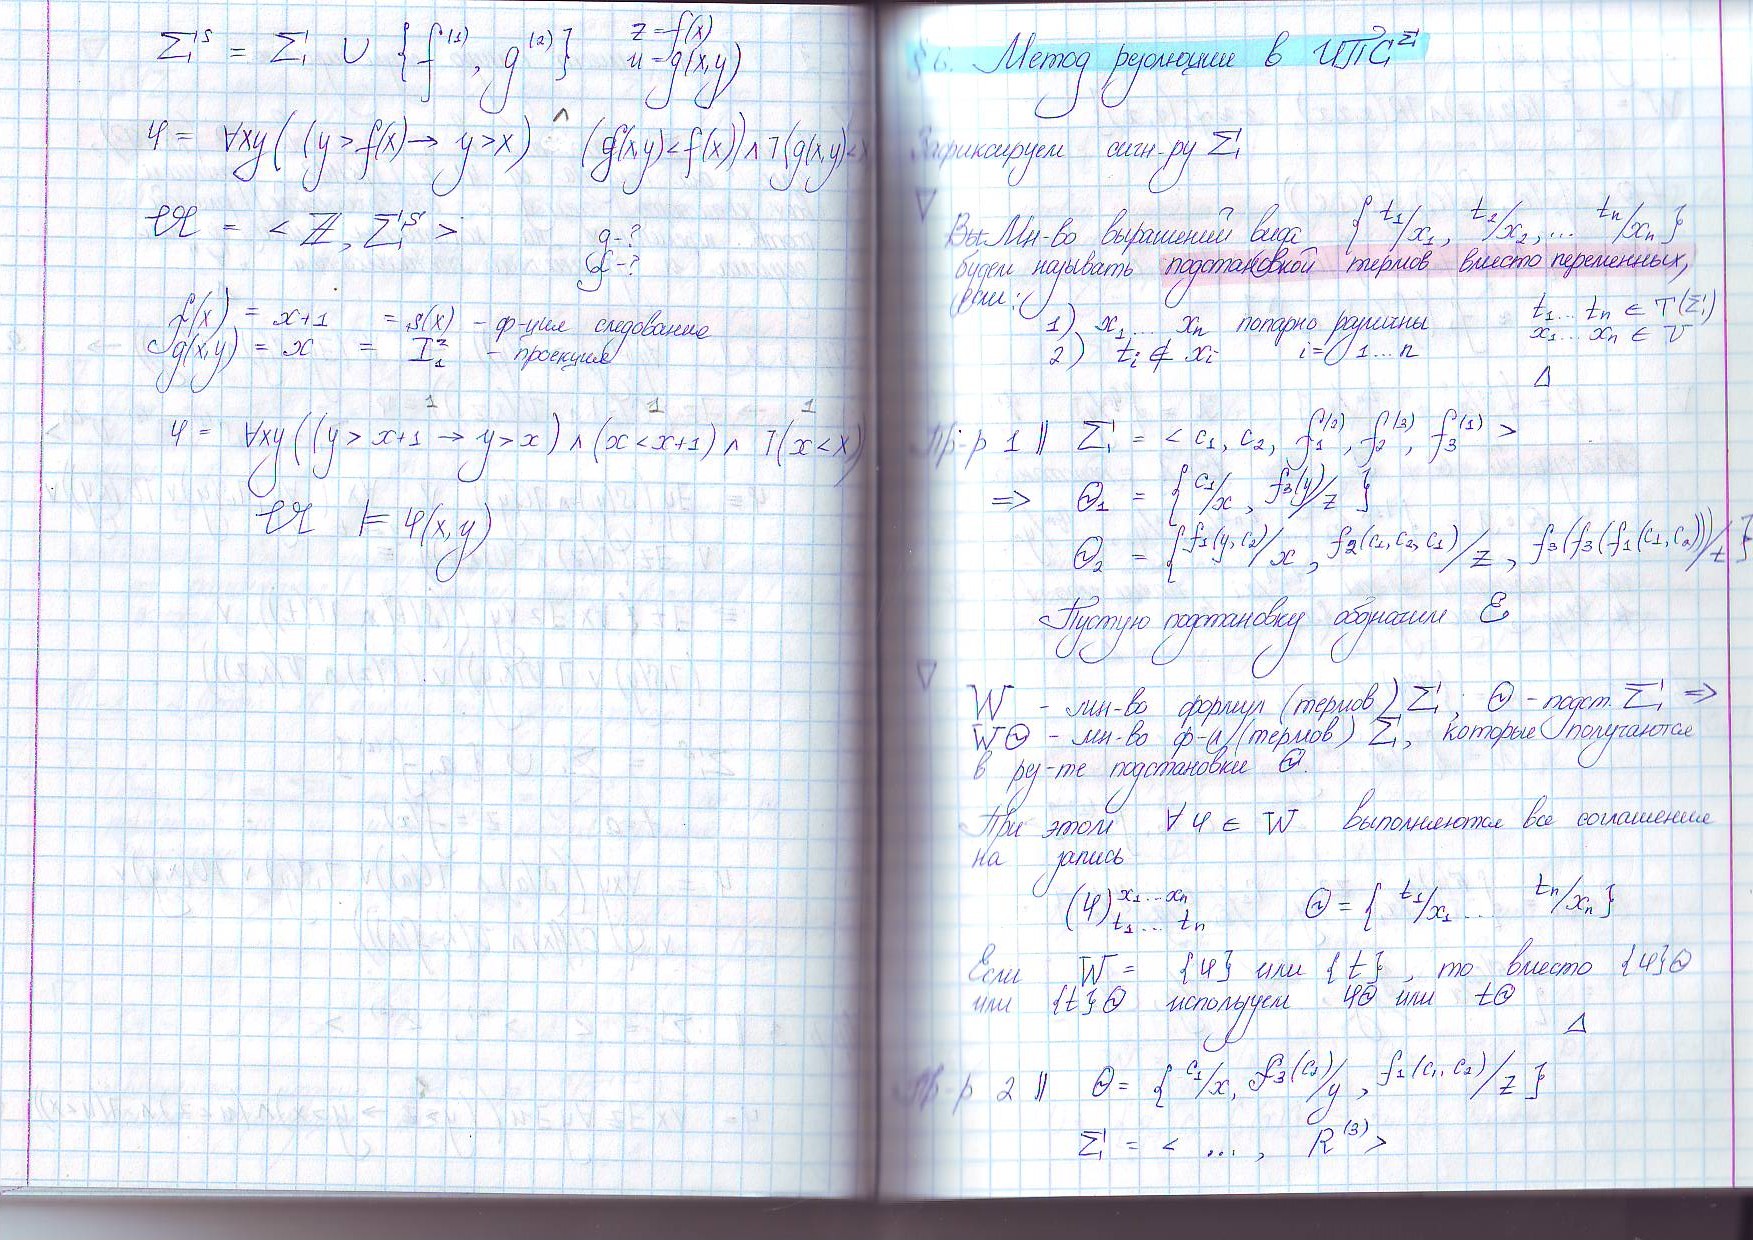 Σ^S = Σ ∪ {f^(1), g^(2)}   z = f(x)
u = g(x,y)
φ = ∀xy((y > f(x) → y > x) ∧ (g(x,y) < f(x)) ∧ ¬(g(x,y) < x
𝔄 = < ℤ, Σ^S >   g - ?
f - ?
f(x) = x+1 = s(x) - ф-ция следование
g(x,y) = x = I₁² - проекция
1   1   1
φ = ∀xy((y > x+1 → y > x) ∧ (x < x+1) ∧ ¬(x < x)
𝔄 ⊨ φ(x,y)
§6. Метод резолюции в ИПС^Σ
Зафиксируем сигн-ру Σ
∇
Мн-во выражений вида {t₁/x₁, t₂/x₂, ... tₙ/xₙ}
будем называть подстановкой термов вместо переменных,
если:
1) x₁ ... xₙ попарно различны   t₁ ... tₙ ∈ T(Σ)
2) tᵢ ∉ xᵢ   i = 1 ... n   x₁ ... xₙ ∈ V
Δ
Пр-р 1 || Σ = < c₁, c₂, f₁^(2), f₂^(3), f₃^(1) >
=> Θ₁ = {c₁/x, f₃(y)/z}
Θ₂ = {f₁(y,c₂)/x, f₂(c₁,c₂,c₁)/z, f₃(f₃(f₁(c₁,c₂)))/t}
Пустую подстановку обозначим ε
∇
W - мн-во формул (термов) Σ; Θ - подст. Σ =>
WΘ - мн-во ф-л (термов) Σ, которые получаются
в рез-те подстановки Θ.
При этом ∀φ ∈ W выполняются все соглашения
на запись
(φ)^{x₁...xₙ}_{t₁...tₙ}   Θ = {t₁/x₁ ... tₙ/xₙ}
Если W = {φ} или {t}, то вместо {φ}Θ
или {t}Θ используем φΘ или tΘ
Δ
Пр-р 2 || Θ = {c₁/x, f₃(c₁)/y, f₁(c₁,c₂)/z}
Σ = < ..., R^(3) >